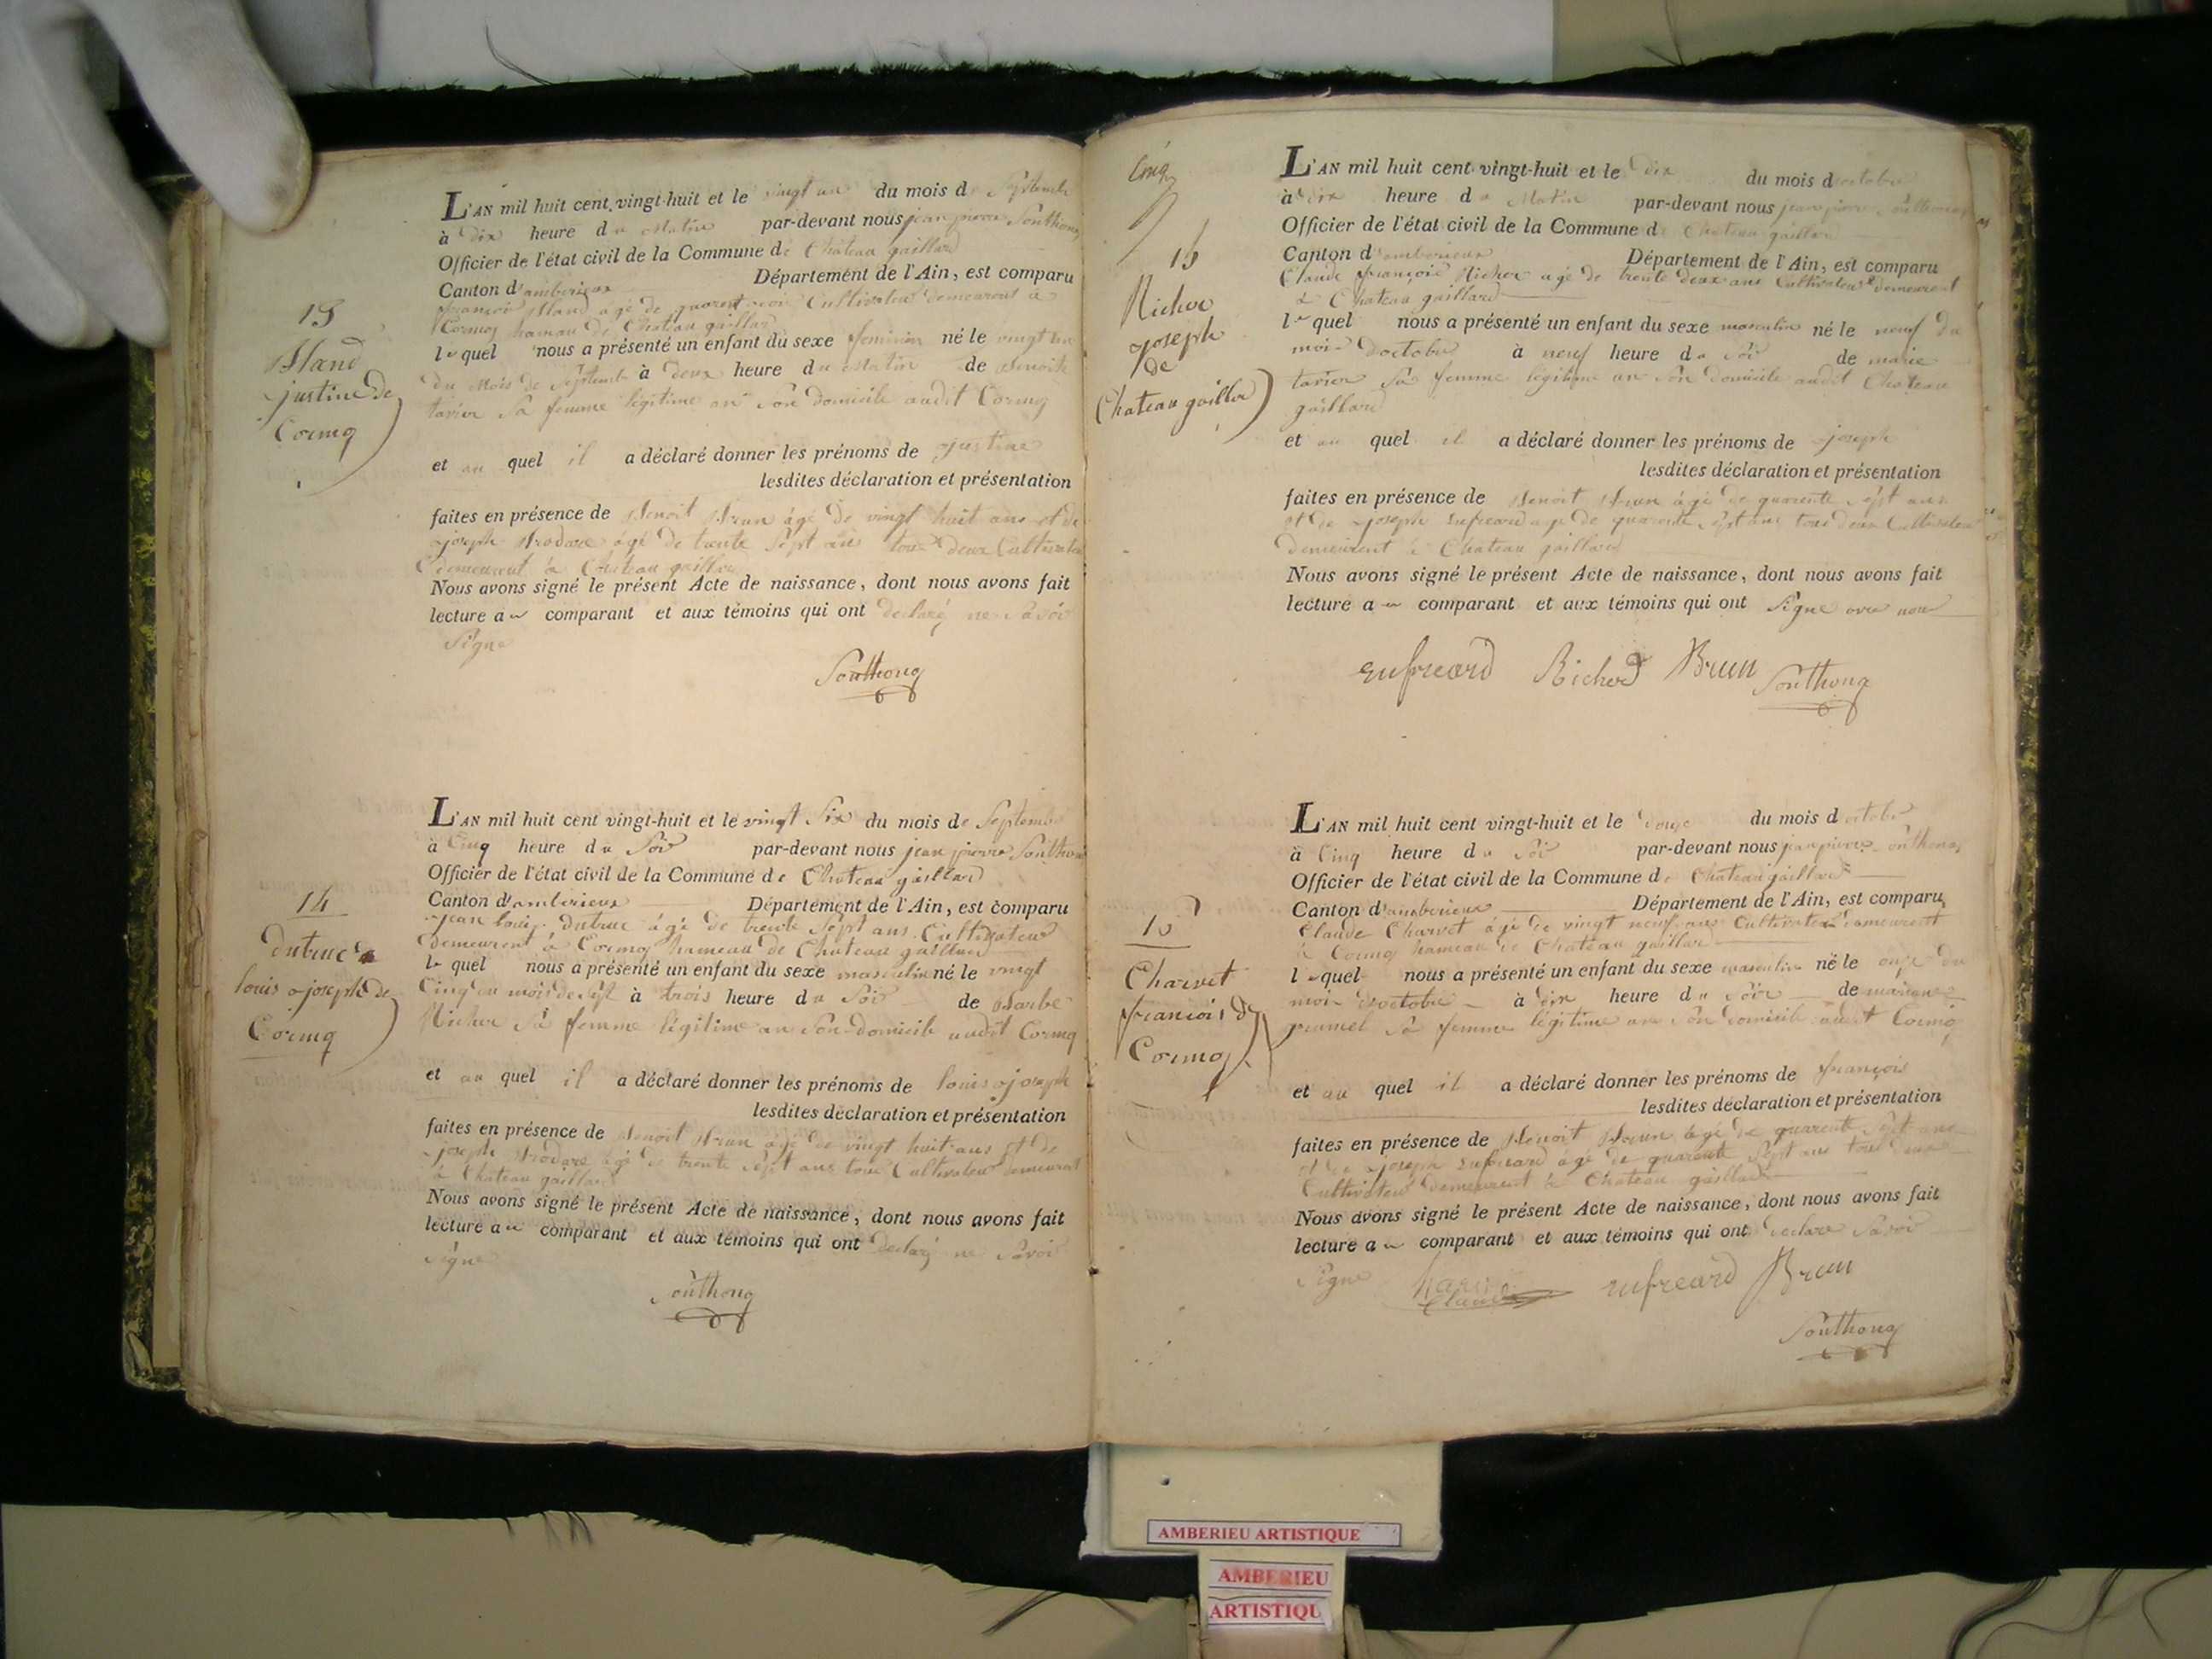 13
Bland
justine de
Cormoz
L'AN mil huit cent vingt-huit et le vingt un du mois de Septembre
à dix heure du Matin par-devant nous jean pierre Southonax
Officier de l'état civil de la Commune de Chateau gaillard
Canton d'amberieux Département de l'Ain, est comparu
françois Bland âgé de quarente Cultivateur demeurant à
Cormoz hamau de Chateau gaillard
le quel nous a présenté un enfant du sexe feminin né le vingt un
du Mois de Septemb à deux heure du Matin de Benoite
tavier Sa femme légitime en Son domicile audit Cormoz
et au quel il a déclaré donner les prénoms de justine
lesdites déclaration et présentation
faites en présence de Benoit Brun âgé de vingt huit ans et de
joseph Brodare âgé de trente Sept ans tous deux Cultivateur
demeurent à Chateau gaillard
Nous avons signé le présent Acte de naissance, dont nous avons fait
lecture au comparant et aux témoins qui ont declaré ne Savoir
Signe
14
dutruc
louis joseph de
Cormoz
L'AN mil huit cent vingt-huit et le vingt Six du mois de Septembre
à Cinq heure du Soir par-devant nous jean pierre Southonax
Officier de l'état civil de la Commune de Chateau gaillard
Canton d'amberieux Département de l'Ain, est comparu
jean louis dutruc âgé de trente Sept ans Cultivateur
demeurent à Cormoz hameau de Chateau gaillard
le quel nous a présenté un enfant du sexe masculin né le vingt
Cinq du mois de Sept à trois heure du Soir de Barbe
Richer Sa femme légitime en Son domicile audit Cormoz
et au quel il a déclaré donner les prénoms de louis joseph
lesdites déclaration et présentation
faites en présence de Benoit Brun âgé de vingt huit ans et de
joseph Brodare âgé de trente Sept ans tous Cultivateur demeurant
à Chateau gaillard
Nous avons signé le présent Acte de naissance, dont nous avons fait
lecture au comparant et aux témoins qui ont declaré ne Savoir
Signe
Cinq
15
Richer
joseph
de
Chateau gaillar
L'AN mil huit cent vingt-huit et le dix du mois d'octobre
à dix heure du Matin par-devant nous jean pierre Southonax
Officier de l'état civil de la Commune de Chateau gaillard
Canton d'amberieux Département de l'Ain, est comparu
Claude françois Richer agé de trente deux ans Cultivateur demeurent
à Chateau gaillard
le quel nous a présenté un enfant du sexe masculin né le neuf du
mois d'octobre à neuf heure du Soir de marie
tavier Sa femme légitime en Son domicile audit Chateau
gaillard
et au quel il a déclaré donner les prénoms de joseph
lesdites déclaration et présentation
faites en présence de Benoit Brun âgé de quarente Sept ans
et de joseph age de quarente Sept ans tous deux Cultivateur
demeurent à Chateau gaillard
Nous avons signé le présent Acte de naissance, dont nous avons fait
lecture au comparant et aux témoins qui ont Signe avec nous
Brun
Charvet
françois de
Cormoz
L'AN mil huit cent vingt-huit et le douze du mois d'octobre
à Cinq heure du Soir par-devant nous jean pierre Southonax
Officier de l'état civil de la Commune de Chateau gaillard
Canton d'amberieux Département de l'Ain, est comparu
Claude Charvet âgé de vingt neuf ans Cultivateur demeurent
à Cormoz hameau de Chateau gaillar
le quel nous a présenté un enfant du sexe masculin né le onze du
mois d'octobre à dix heure du Soir de
Sa femme légitime en Son domicile audit Cormoz
et au quel il a déclaré donner les prénoms de françois
lesdites déclaration et présentation
faites en présence de Benoit Brun âgé de quarente Sept ans
et de joseph âgé de quarente Sept ans tous deux
Cultivateur demeurent à Chateau gaillard
Nous avons signé le présent Acte de naissance, dont nous avons fait
lecture au comparant et aux témoins qui ont declare Savoir
Signe Claude Brun
AMBERIEU ARTISTIQUE
AMBERIEU
ARTISTIQU